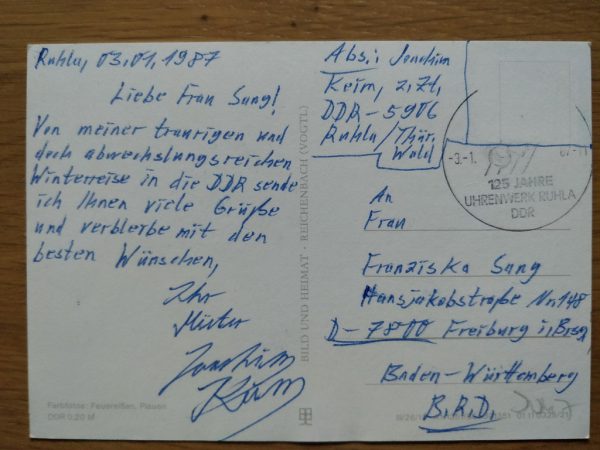 Ruhla, 03.01.1987
Liebe Frau Sang!
Von meiner traurigen und
doch abwechslungsreichen
Winterreise in die DDR sende
ich Ihnen viele Grüße
und verbleibe mit den
besten Wünschen,
Ihr
Joachim
Farbfotos: Feuereißen, Plauen
DDR 0,20 M
BILD UND HEIMAT · REICHENBACH (VOGTL)
Abs.: Joachim
Keim, z.Zt.
DDR-5906
Ruhla/Thür.
Wald
-3.-1.
125 JAHRE
UHRENWERK RUHLA
DDR
An
Frau
Franziska Sang
Hansjakobstraße Nr. 148
D-7800 Freiburg i. Brsg.
Baden-Württemberg
B.R.D.